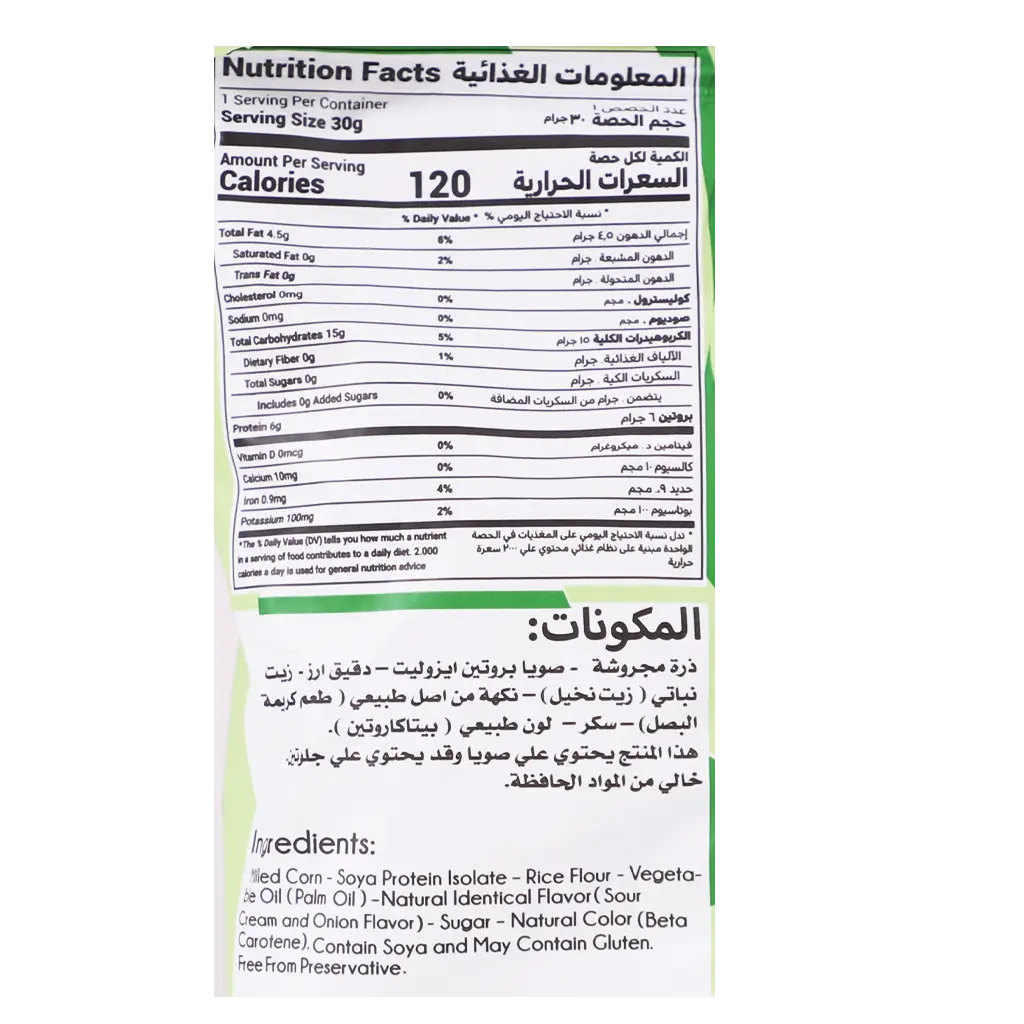 Nutrition Facts المعلومات الغذائية
1 Serving Per Container عدد الحصص ١
Serving Size 30g حجم الحصة ٣٠ جرام
Amount Per Serving الكمية لكل حصة
Calories 120 السعرات الحرارية
% Daily Value * % نسبة الاحتياج اليومي *
Total Fat 4.5g 6% إجمالي الدهون ٤,٥ جرام
Saturated Fat 0g 2% الدهون المشبعة ٠ جرام
Trans Fat 0g الدهون المتحولة ٠ جرام
Cholesterol 0mg 0% كوليسترول ٠ مجم
Sodium 0mg 0% صوديوم ٠ مجم
Total Carbohydrates 15g 5% الكربوهيدرات الكلية ١٥ جرام
Dietary Fiber 0g 1% الألياف الغذائية ٠ جرام
Total Sugars 0g السكريات الكية ٠ جرام
Includes 0g Added Sugars 0% يتضمن ٠ جرام من السكريات المضافة
Protein 6g بروتين ٦ جرام
Vitamin D 0mcg 0% فيتامين د ٠ ميكروغرام
Calcium 10mg 0% كالسيوم ١٠ مجم
Iron 0.9mg 4% حديد ٠,٩ مجم
Potassium 100mg 2% بوتاسيوم ١٠٠ مجم
*The % Daily Value (DV) tells you how much a nutrient
in a serving of food contributes to a daily diet. 2.000
calories a day is used for general nutrition advice
* تدل نسبة الاحتياج اليومي على المغذيات في الحصة
الواحدة مبنية على نظام غذائي محتوي علي ٢٠٠٠ سعرة
حرارية
المكونات:
ذرة مجروشة - صويا بروتين ايزوليت – دقيق ارز - زيت
نباتي ( زيت نخيل ) – نكهة من اصل طبيعي ( طعم كريمة
البصل ) – سكر – لون طبيعي ( بيتاكاروتين ).
هذا المنتج يحتوي علي صويا وقد يحتوي علي جلوتين.
خالي من المواد الحافظة.
Ingredients:
Milled Corn - Soya Protein Isolate – Rice Flour - Vegeta-
ble Oil ( Palm Oil ) –Natural Identical Flavor( Sour
Cream and Onion Flavor ) - Sugar – Natural Color (Beta
Carotene). Contain Soya and May Contain Gluten.
Free From Preservative.